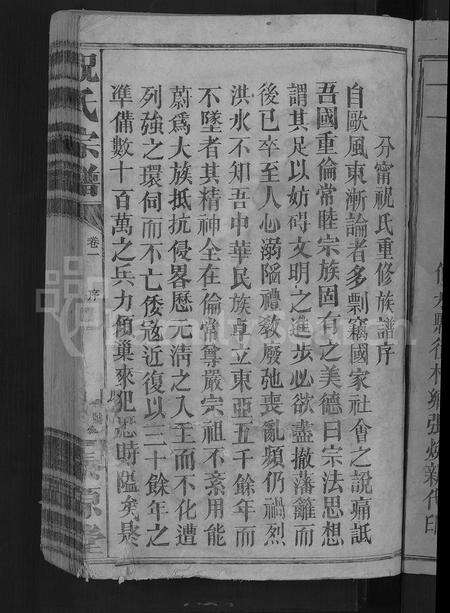 分甯祝氏重修族譜序
自歐風東漸論者多剽竊國家社會之說痛詆
吾國重倫常睦宗族固有之美德曰宗法思想
謂其足以妨碍文明之進步必欲盡撤藩籬而
後已卒至人心溺陷禮教廢弛喪亂頻仍禍烈
洪水不知吾中華民族卓立東亞五千餘年而
不墜者其精神全在倫常尊嚴宗祖不紊用能
蔚爲大族抵抗侵畧歷元淸之入主而不化遭
列強之環伺而不亡倭寇近復以三十餘年之
準備數十百萬之兵力傾巢來犯歷時隘矣㬥
祝氏宗譜
卷一
序